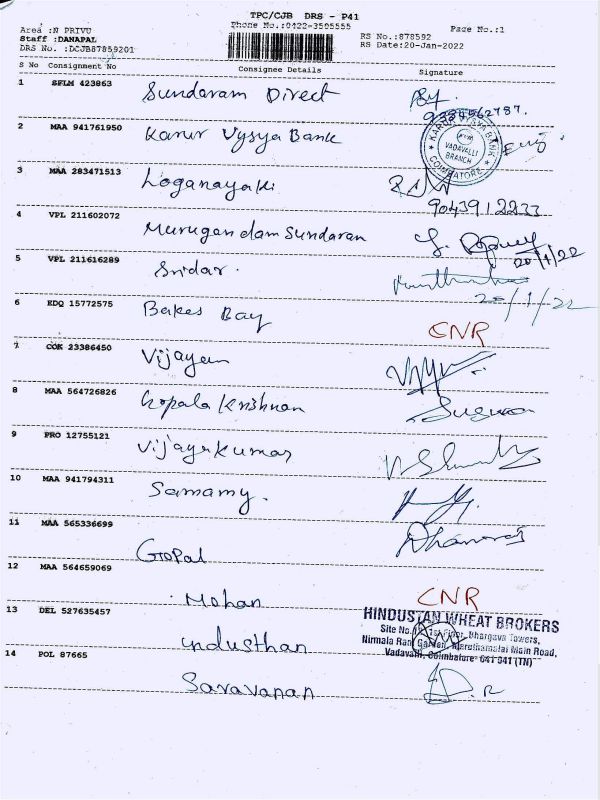 TPC/CJB DRS - P41
Area :N PRIVU Phone No.:0422-3505555 Page No.:1
Staff :DANAPAL RS No.:878592
DRS No. :DCJB87859201 RS Date:20-Jan-2022
S No Consignment No Consignee Details Signature
1 SFLM 423863 Sundaram Direct
2 MAA 941761950 Karur Vysya Bank
KARUR VYSYA BANK
VADAVALLI
BRANCH
COIMBATORE
3 MAA 283471513 Loganayaki
9043912233
4 VPL 211602072 Murugandam Sundaran
20/1/22
5 VPL 211616289 Sridar.
20/1/22
6 EDQ 15772575 Bakes Bay CNR
7 COK 23386450 Vijayan
8 MAA 564726826 Gopala Krishnan Suguna
9 PRO 12755121 Vijayakumar
10 MAA 941794311 Samamy.
11 MAA 565336699 Gopal Dhanaraj
12 MAA 564659069 Mohan CNR
13 DEL 527635457 industhan
HINDUSTAN WHEAT BROKERS
Site No. 1st Floor, Bhargava Towers,
Nirmala Rani Garden, Maruthamalai Main Road,
Vadavalli, Coimbatore-641 041 (TN)
14 POL 87665 Saravanan